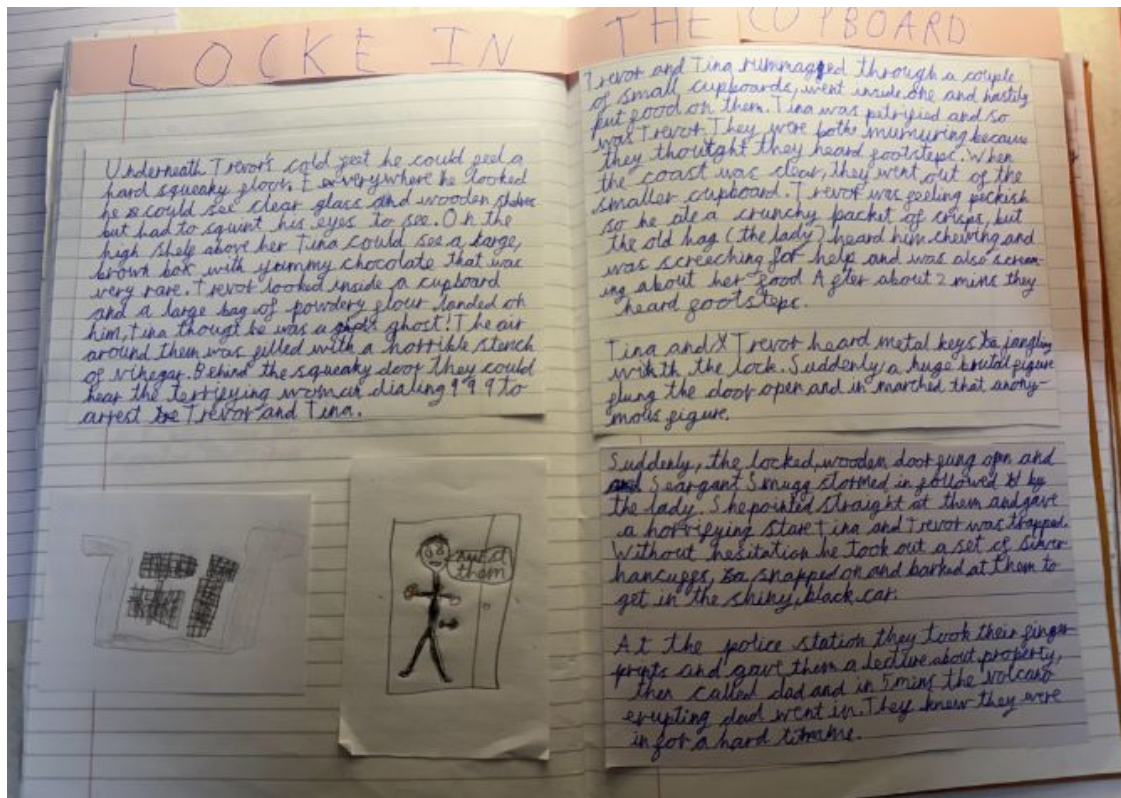 LOCKE IN THE CUPBOARD
Underneath Trevor's cold feet he could feel a
hard squeaky floor. Everywhere he looked
he could see clear glass and wooden shelves
but had to squint his eyes to see. On the
high shelf above her Tina could see a large,
brown box with yummy chocolate that was
very rare. Trevor looked inside a cupboard
and a large bag of powdery flour landed on
him, tina thought he was a ghost! The air
around them was filled with a horrible stench
of vinegar. Behind the squeaky door they could
hear the terrifying woman dialing 999 to
arrest Trevor and Tina.
arrest
them
Trevor and Tina rummaged through a couple
of small cupboards, went inside one and hastily
put food on them. Tina was petrified and so
was Trevor. They were both mumuring because
they thoutght they heard footsteps. When
the coast was clear, they went out of the
smaller cupboard. Trevor was feeling pickish
so he ate a crunchy packet of crisps, but
the old hag (the lady) heard him chewing and
was screeching for help and was also scream-
ing about her food After about 2 mins they
heard footsteps.
Tina and Trevor heard metal keys jangling
with the lock. Suddenly a huge brutal figure
flung the door open and in marched that anony-
mous figure.
Suddenly, the locked, wooden door fung open and
Seargant Smugg stormed in followed by
the lady. She pointed straight at them and gave
a horrifying stare Tina and Trevor was trapped.
Without hesitation he took out a set of silver
hancuffs, snapped on and barked at them to
get in the shiny, black car.
At the police station they took their finger
prints and gave them a lecture about property,
then called dad and in 5 mins the volcano
erupting dad went in. They knew they were
in for a hard time.